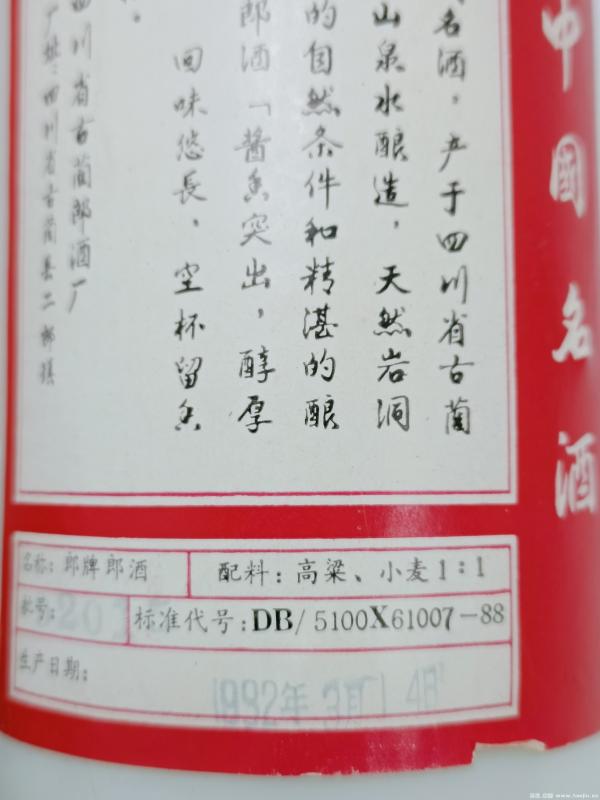 中国名酒
名酒，产于四川省古蔺
山泉水酿造，天然岩洞
的自然条件和精湛的酿
郎酒「醬香突出，醇厚
回味悠長，空杯留香
四川省古蔺郎酒厂
厂址：四川省古蔺县二郎镇
名称：郎牌郎酒
配料：高粱、小麦1:1
批号：
标准代号：DB/5100X61007-88
生产日期：
1992年3月14日